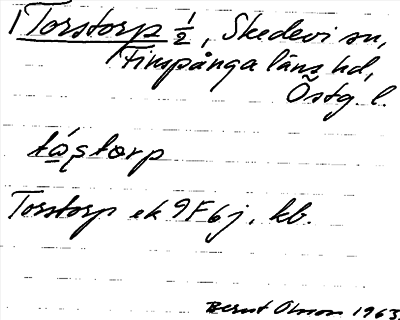 1 Torstorp 1/2, Skedevi sn,
Finspånga läns hd,
Östg. l.
tåstorp
Torstorp ek 9F6j, kb.
Bernt Olsson 1963